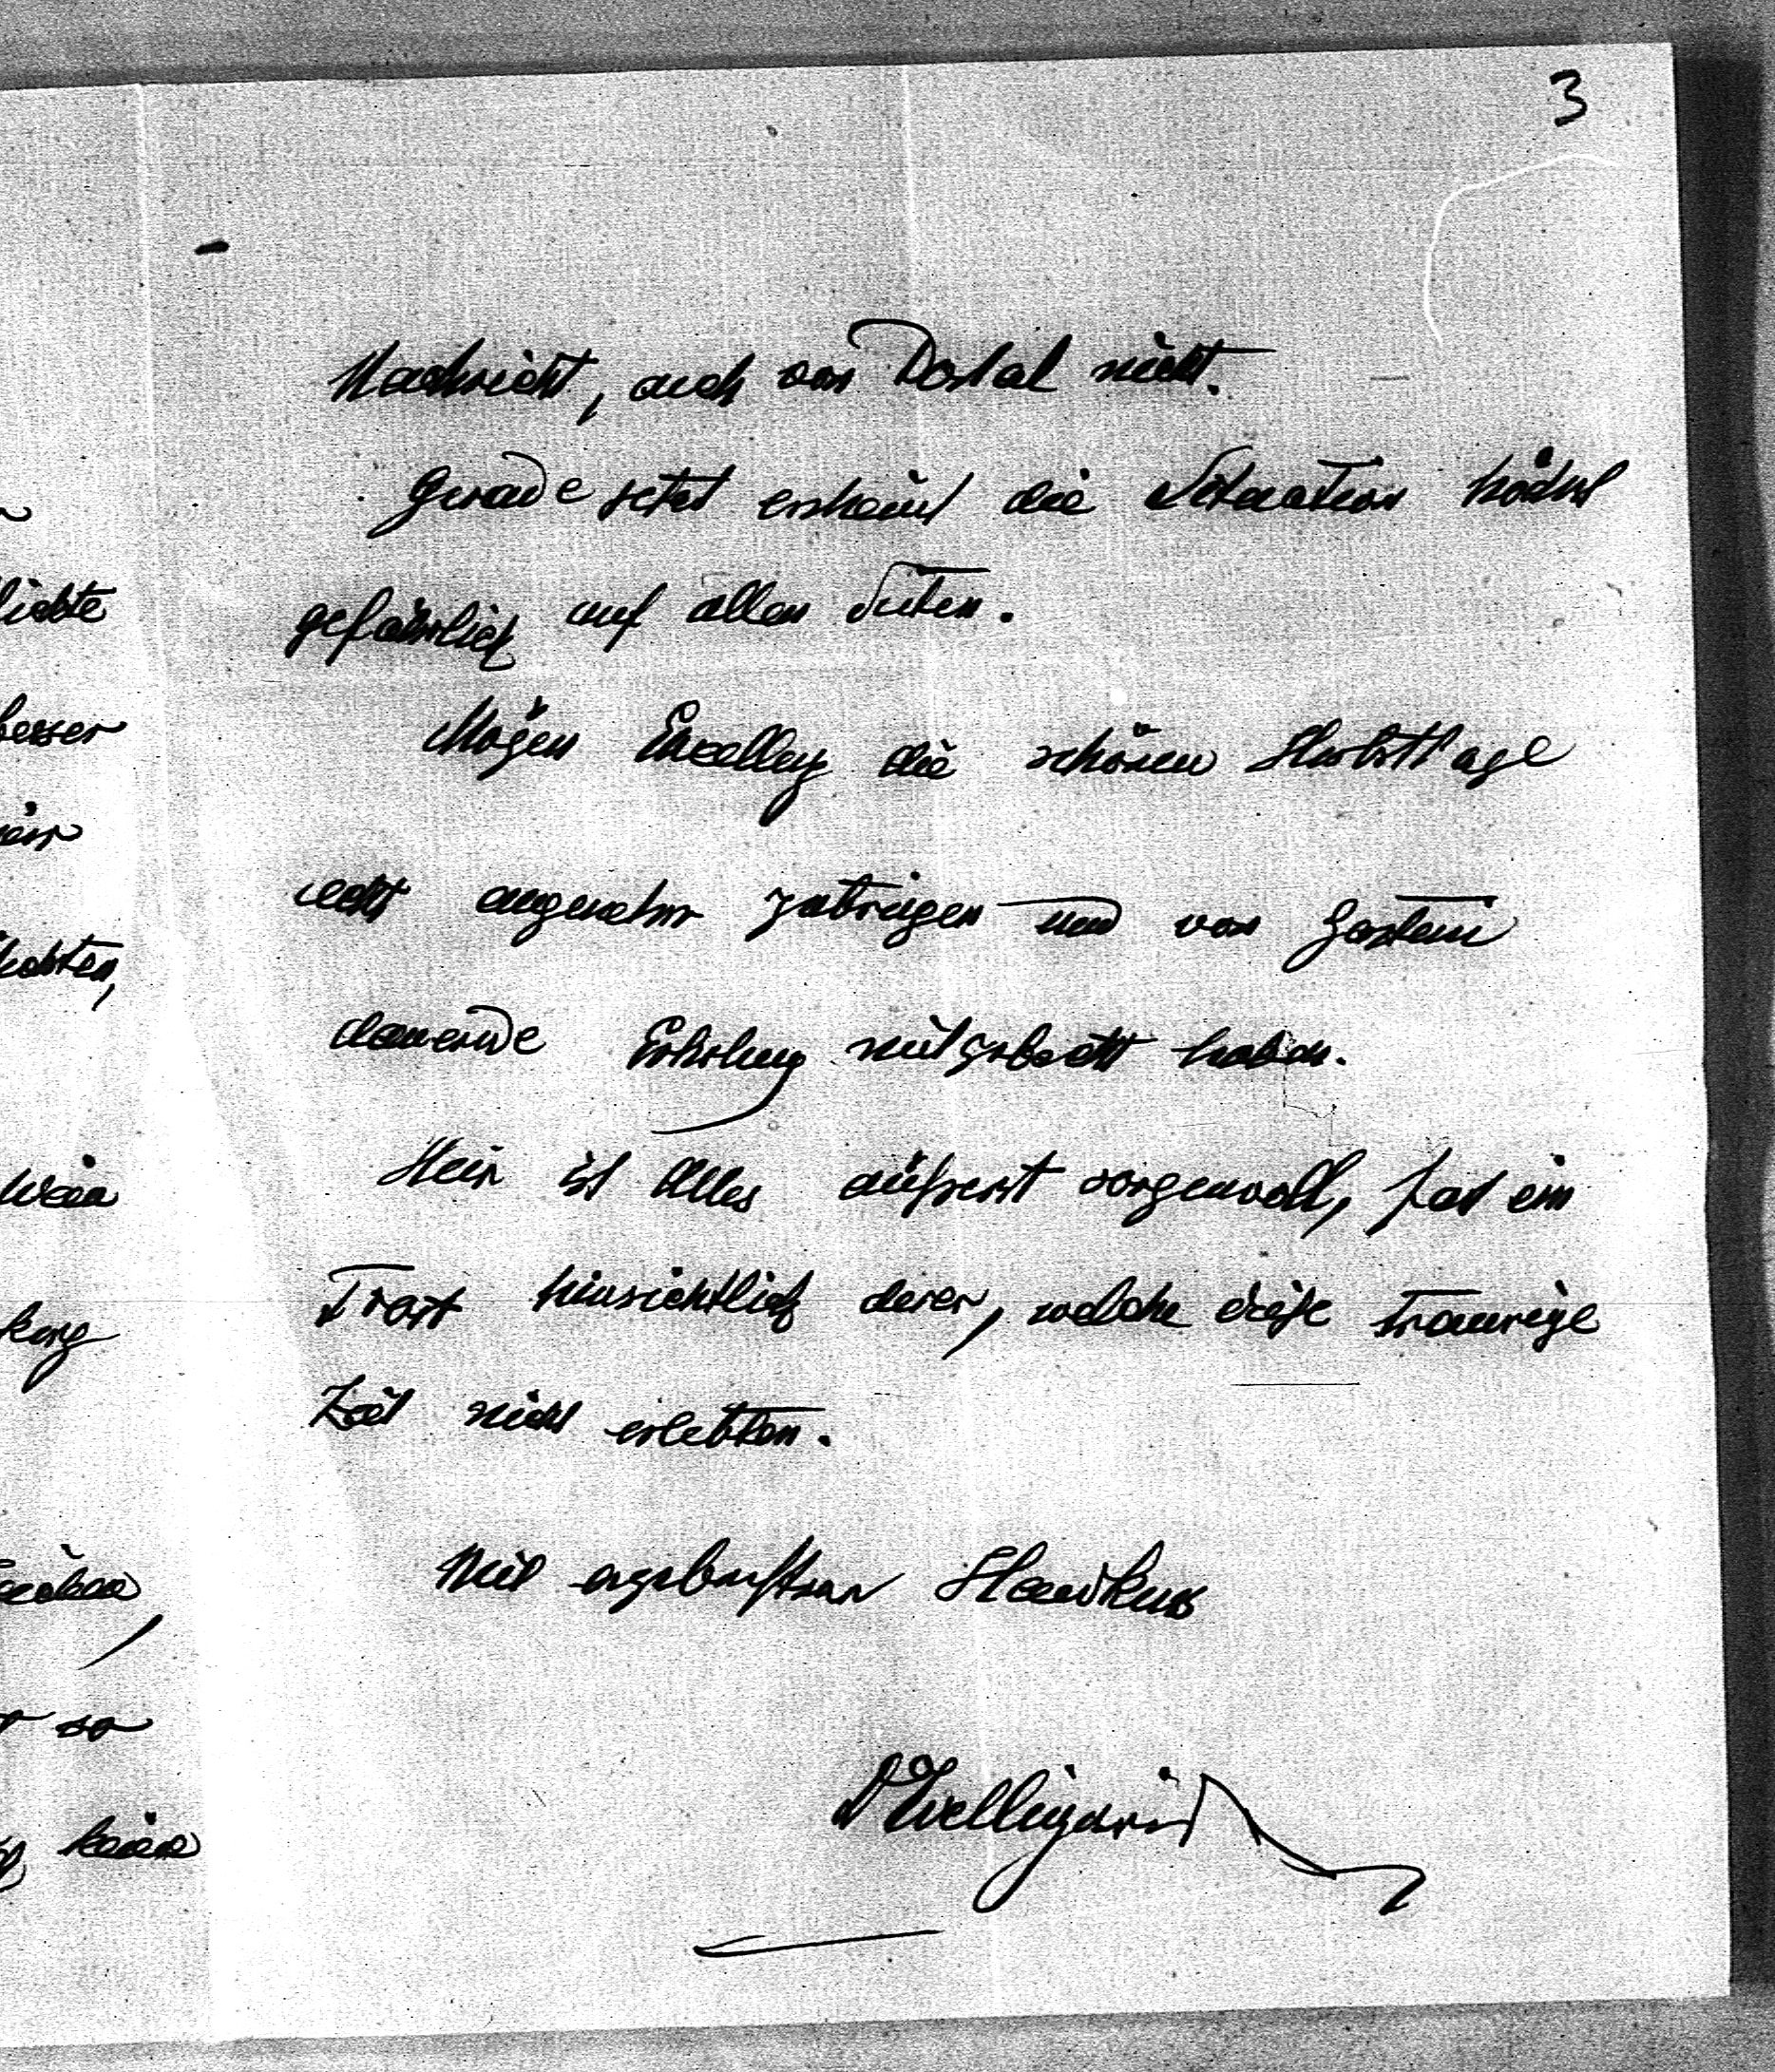 3
Nachricht, auch von Dostal nicht.
Gerade jetzt erscheint die Situation höchst
gefährlich auf allen Seiten.
Mögen Excellenz die schönen Herbsttage
recht angenehm zubringen und von Gastein
dauernde Erholung mitgebracht haben.
Hier ist Alles äußerst sorgenvoll, fast ein
Trost hinsichtlich derer, welche diese traurige
Zeit nicht erlebten.
Mit ergebenstem Handkuss
liebte
besser
habten,
so